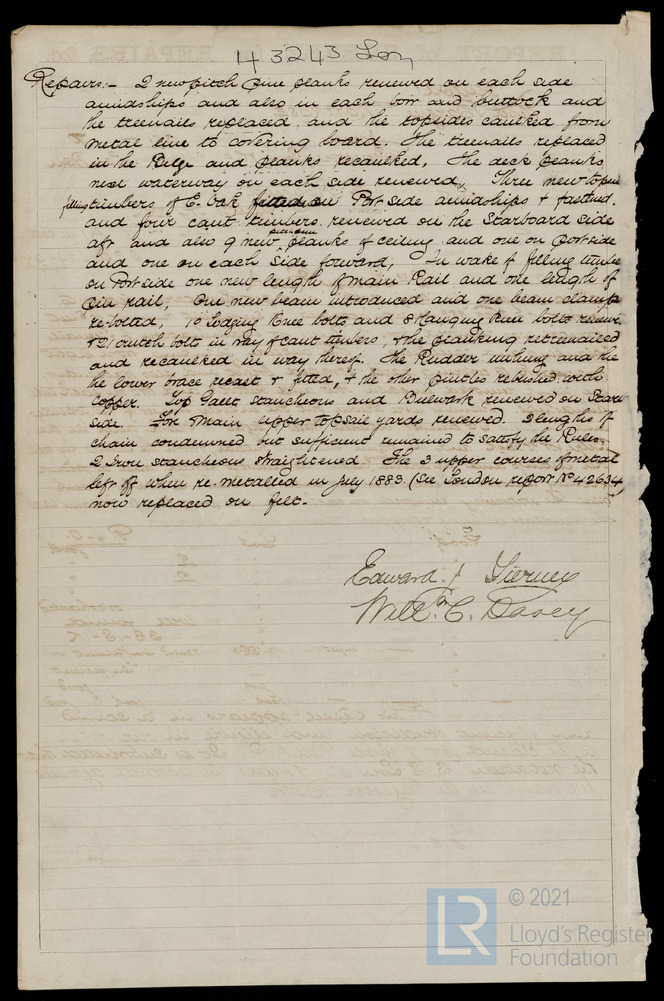 43243 Lon
Repairs:- 2 new pitch pine planks renewed on each side
amidships and also in each bow and buttock and
the treenails replaced and the topsides caulked from
metal line to covering board. The treenails replaced
in the Bilge and planks recaulked, The deck planks
next waterway on each side renewed, Three new top
filling timbers of E. Oak fitted on Port side amidships & fastned.
and four cant timbers renewed on the Starboard side
aft and also 9 new pitch pine planks of ceiling and one on port side
and one on each side forward, In wake of filling timbers
on Port side one new length of main Rail and one length of
pin rail, One new beam introduced and one beam clamp
re-bolted, 10 Lodging Knee bolts and 8 Hanging Knee bolts renewed
& 21 crutch bolt in way of cant timbers, & the planking retreenailed
and recaulked in way thereof. The Rudder and the
the lower brace recast & fitted, & the other pintles rebushed with
Copper. Top Gallt Stancheons and Bulwark renewed on Starb
side. Fore & Main upper topsail yards renewed. 2 lengths of
chain condemned but sufficient remained to satisfy the Rules.
2 Iron stancheons straightened. The 3 upper courses of metal
left off when re-metalled in July 1883 (See London report No 42634)
now replaced on felt.
Edward J Tierney
Willm C. Davey
© 2021
LR
Lloyd's Register
Foundation